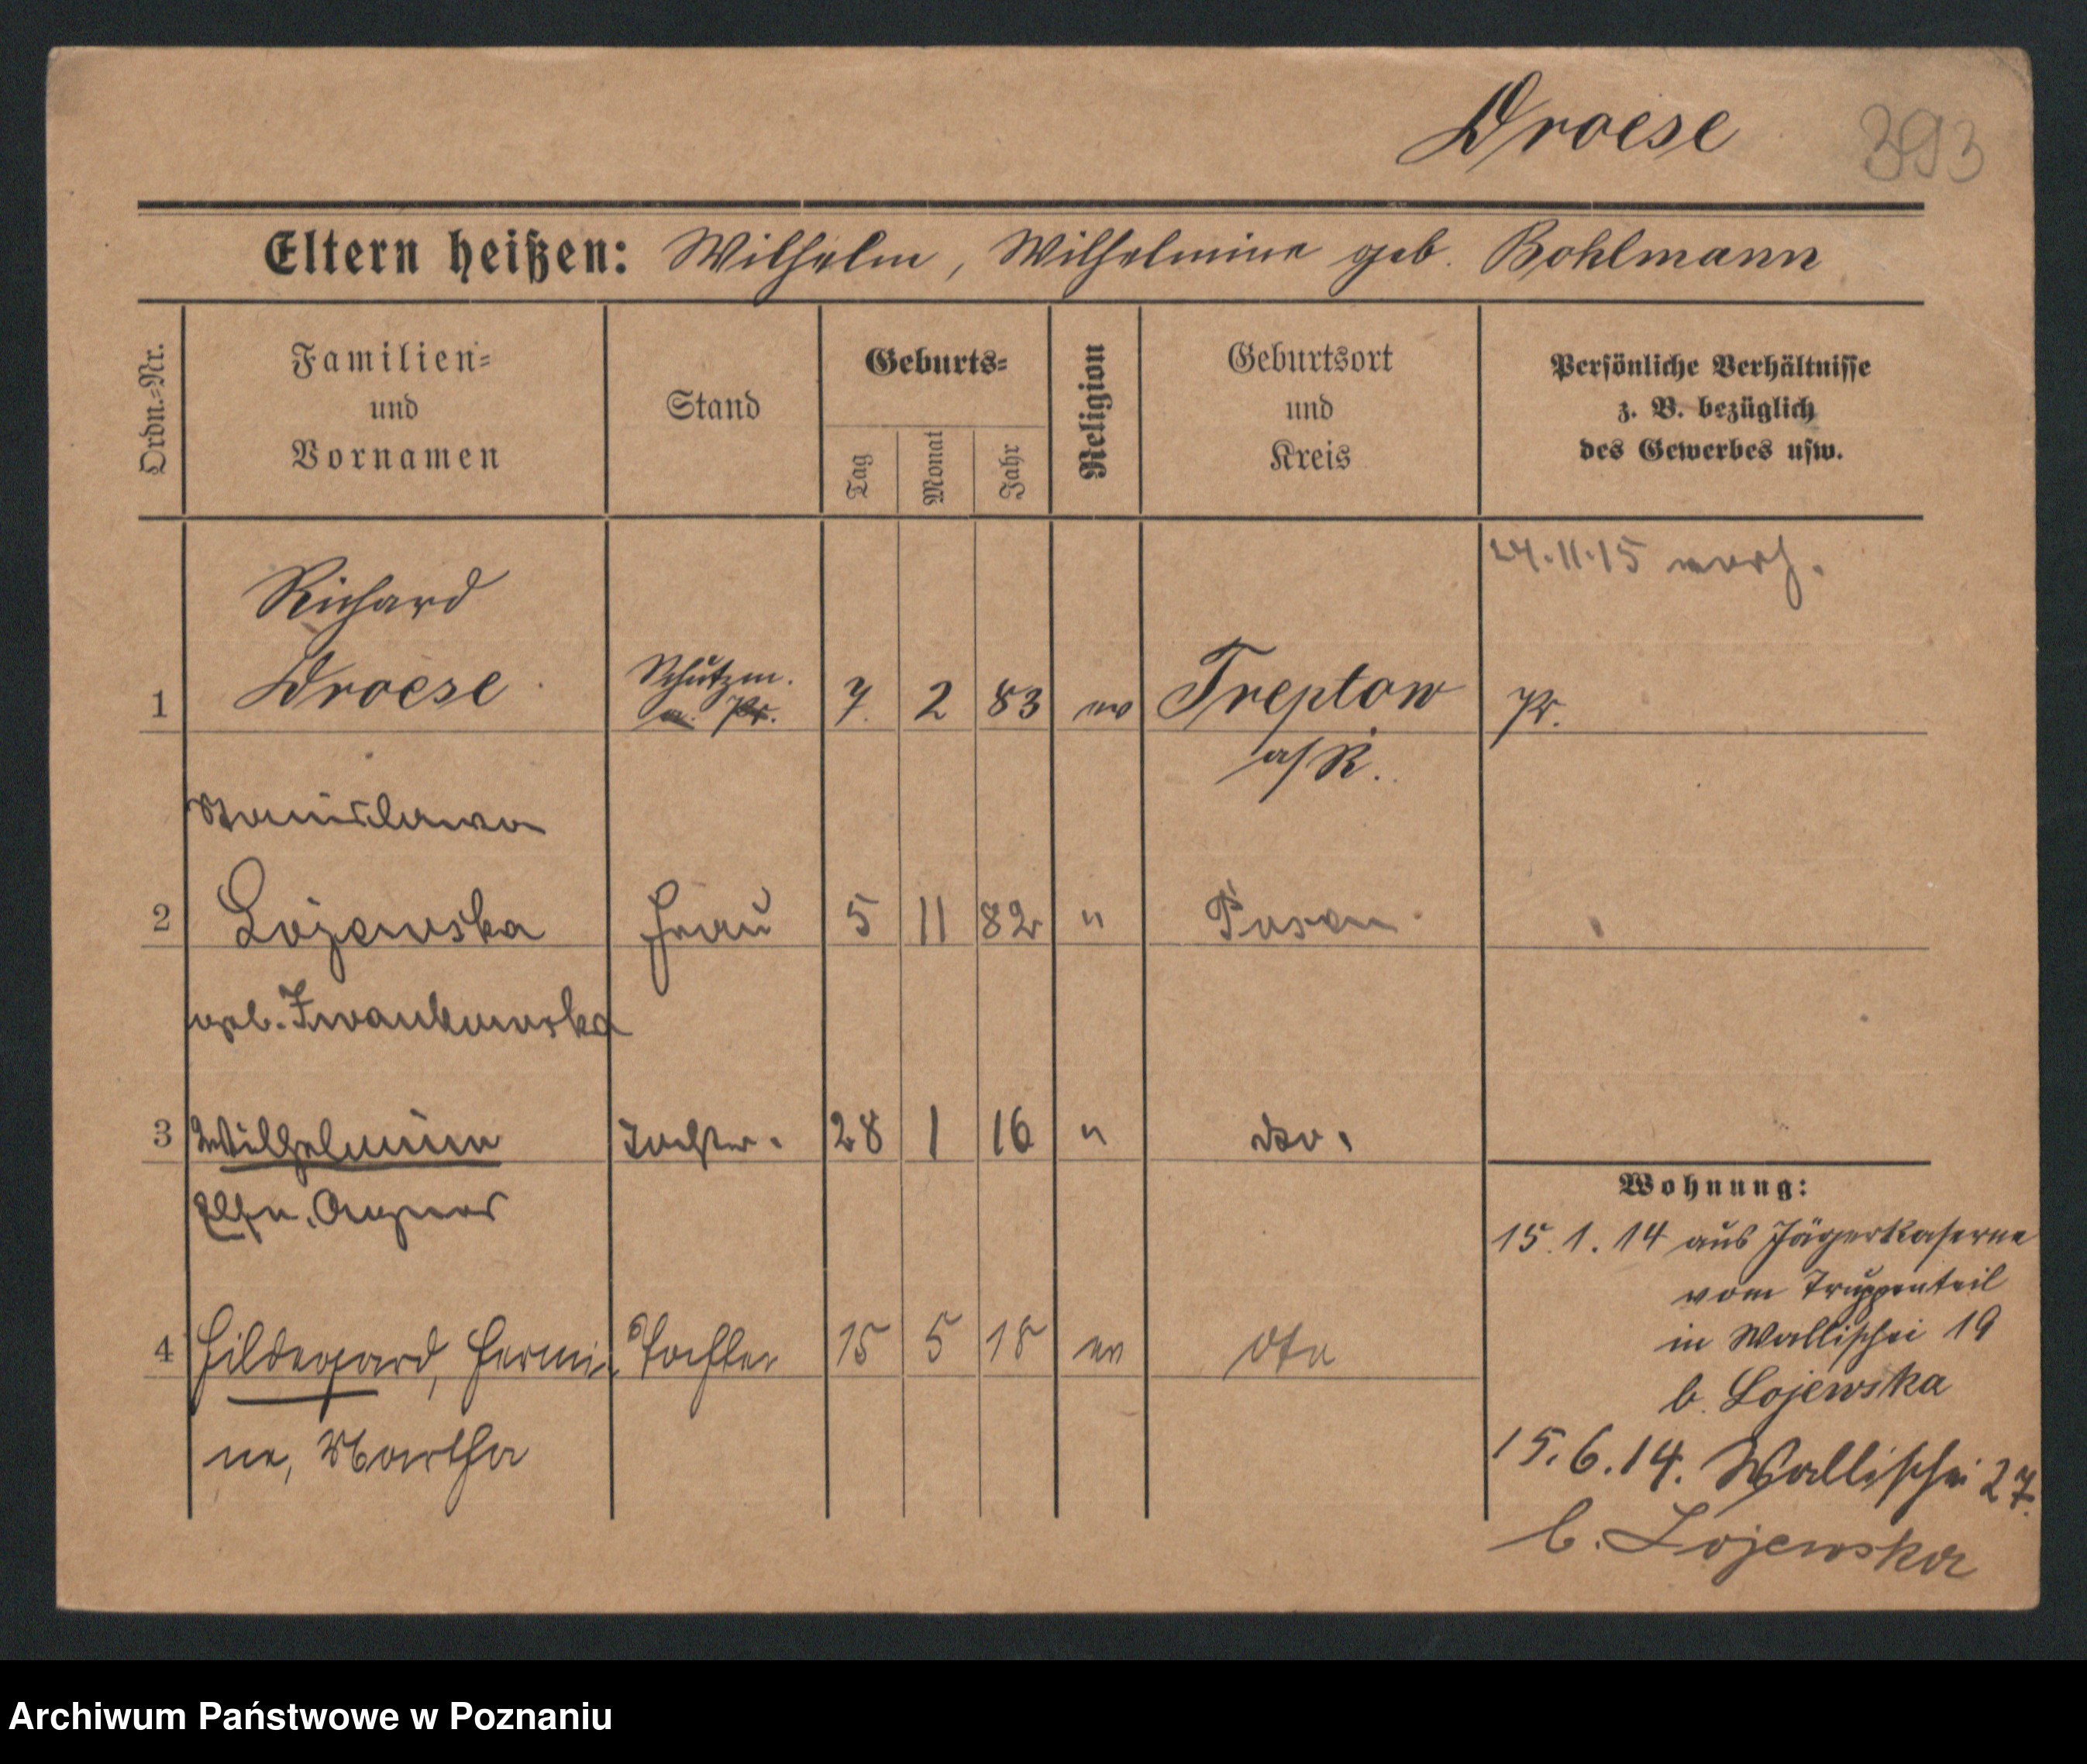 Droese 393
Eltern heißen: Wilhelm, Wilhelmine geb. Bohlmann
Ordn.=Nr.
Familien=
und
Vornamen
Stand
Geburts=
Tag
Monat
Jahr
Religion
Geburtsort
und
Kreis
Persönliche Verhältnisse
z. B. bezüglich
des Gewerbes usw.
24.11.15 verh.
Richard
1 Droese Schutzm. 7. 2 83 ev Treptow Pr.
a/R.
Stanislawa
2 Lojewska Frau 5 11 82 " Posen
geb. Iwankowska
3 Wilhelmine Tochter. 28 1 16 " do.
Agnes
4 Hildegard, Hermi- Tochter 15 5 18 ev dto
ne, Martha
Wohnung:
15.1.14 aus Jägerkaserne
vom Truppenteil
in Wallischei 19
b. Lojewska
15.6.14. Wallischei 27.
b. Lojewska
Archiwum Państwowe w Poznaniu